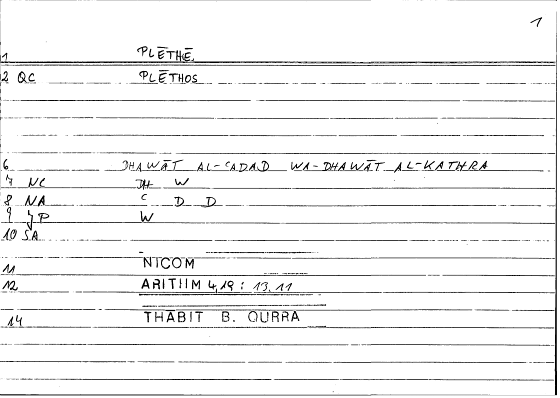 1
1 PLĒTHĒ
2 QC PLĒTHOS
6 DHAWĀT AL-CADAD WA-DHAWĀT AL-KATHRA
7 NC DH W
8 NA C D D
9 JP W
10 SA
11 NICOM
12 ARITHM 4,19 : 13,11
14 THABIT B. QURRA